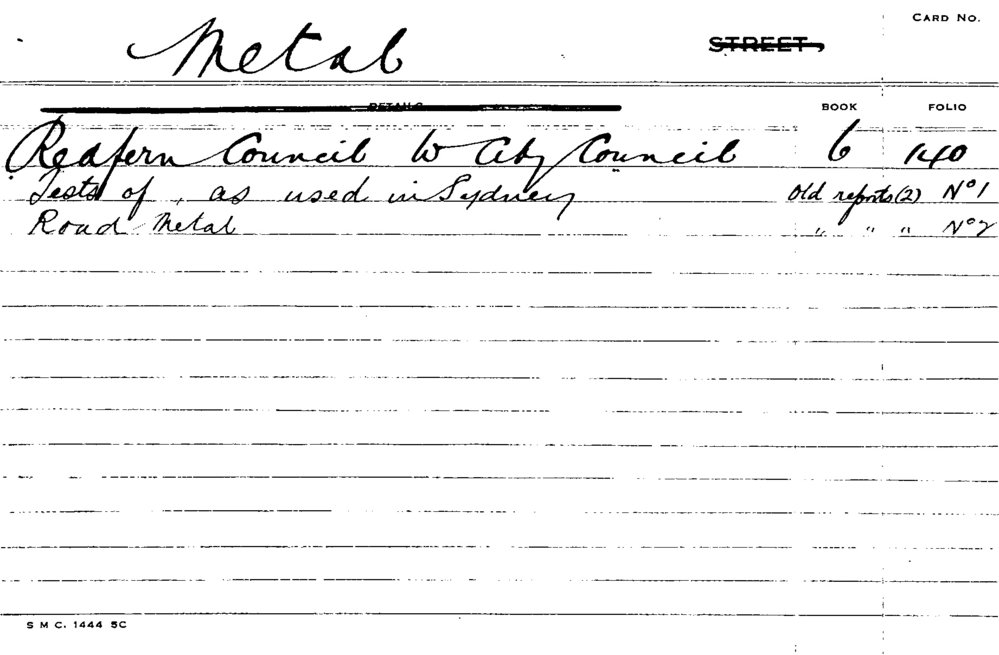 CARD NO.
Metal STREET,
DETAILS BOOK FOLIO
Redfern Council to City Council 6 140
Tests of, as used in Sydney Old reports (2) No 1
Road Metal " " " No 2
S M C. 1444 5C